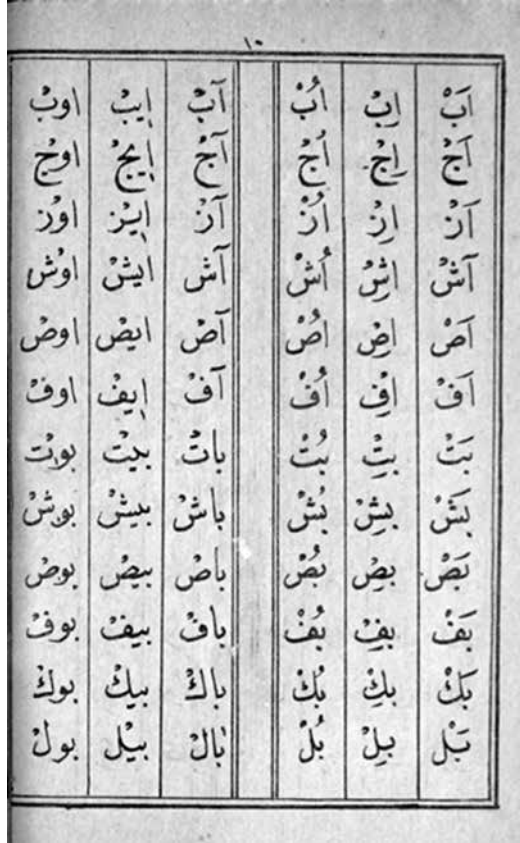 ١٠
اَبْ اِبْ اُبْ آبْ اِيبْ اوبْ
اَجْ اِجْ اُجْ آجْ اِيجْ اوجْ
اَزْ اِزْ اُزْ آزْ اِيزْ اوزْ
آشْ اِشْ اُشْ آش ايشْ اوشْ
اَضْ اِضْ اُضْ آضْ ايضْ اوضْ
اَفْ اِفْ اُفْ آفْ اِيفْ اوفْ
بَتْ بِتْ بُتْ باتْ بيتْ بوت
بَشْ بِشْ بُشْ باشْ بيشْ بوشْ
بَضْ بِضْ بُضْ باضْ بيضْ بوضْ
بَفْ بِفْ بُفْ بافْ بيفْ بوفْ
بَكْ بِكْ بُكْ باكْ بيكْ بوكْ
بَلْ بِلْ بُلْ بالْ بيْل بولْ